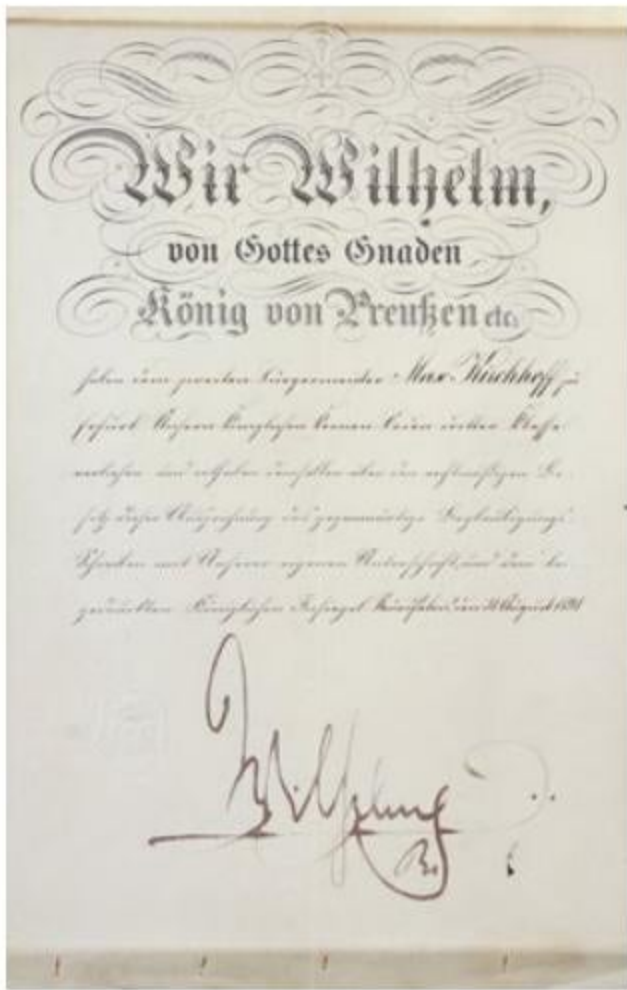 Wir Wilhelm,
von Gottes Gnaden
König von Preußen etc.
haben dem zweiten Bürgermeister Max Kirchhoff zu
Unsern Königlichen Kronen Orden vierter Klasse
verliehen und ertheilen demselben über den rechtmäßigen Be-
sitz dieser Auszeichnung das gegenwärtige Beglaubigungs-
Schreiben mit Unserer eigenen Unterschrift und dem
Königlichen Insiegel den August
Wilhelm
R.